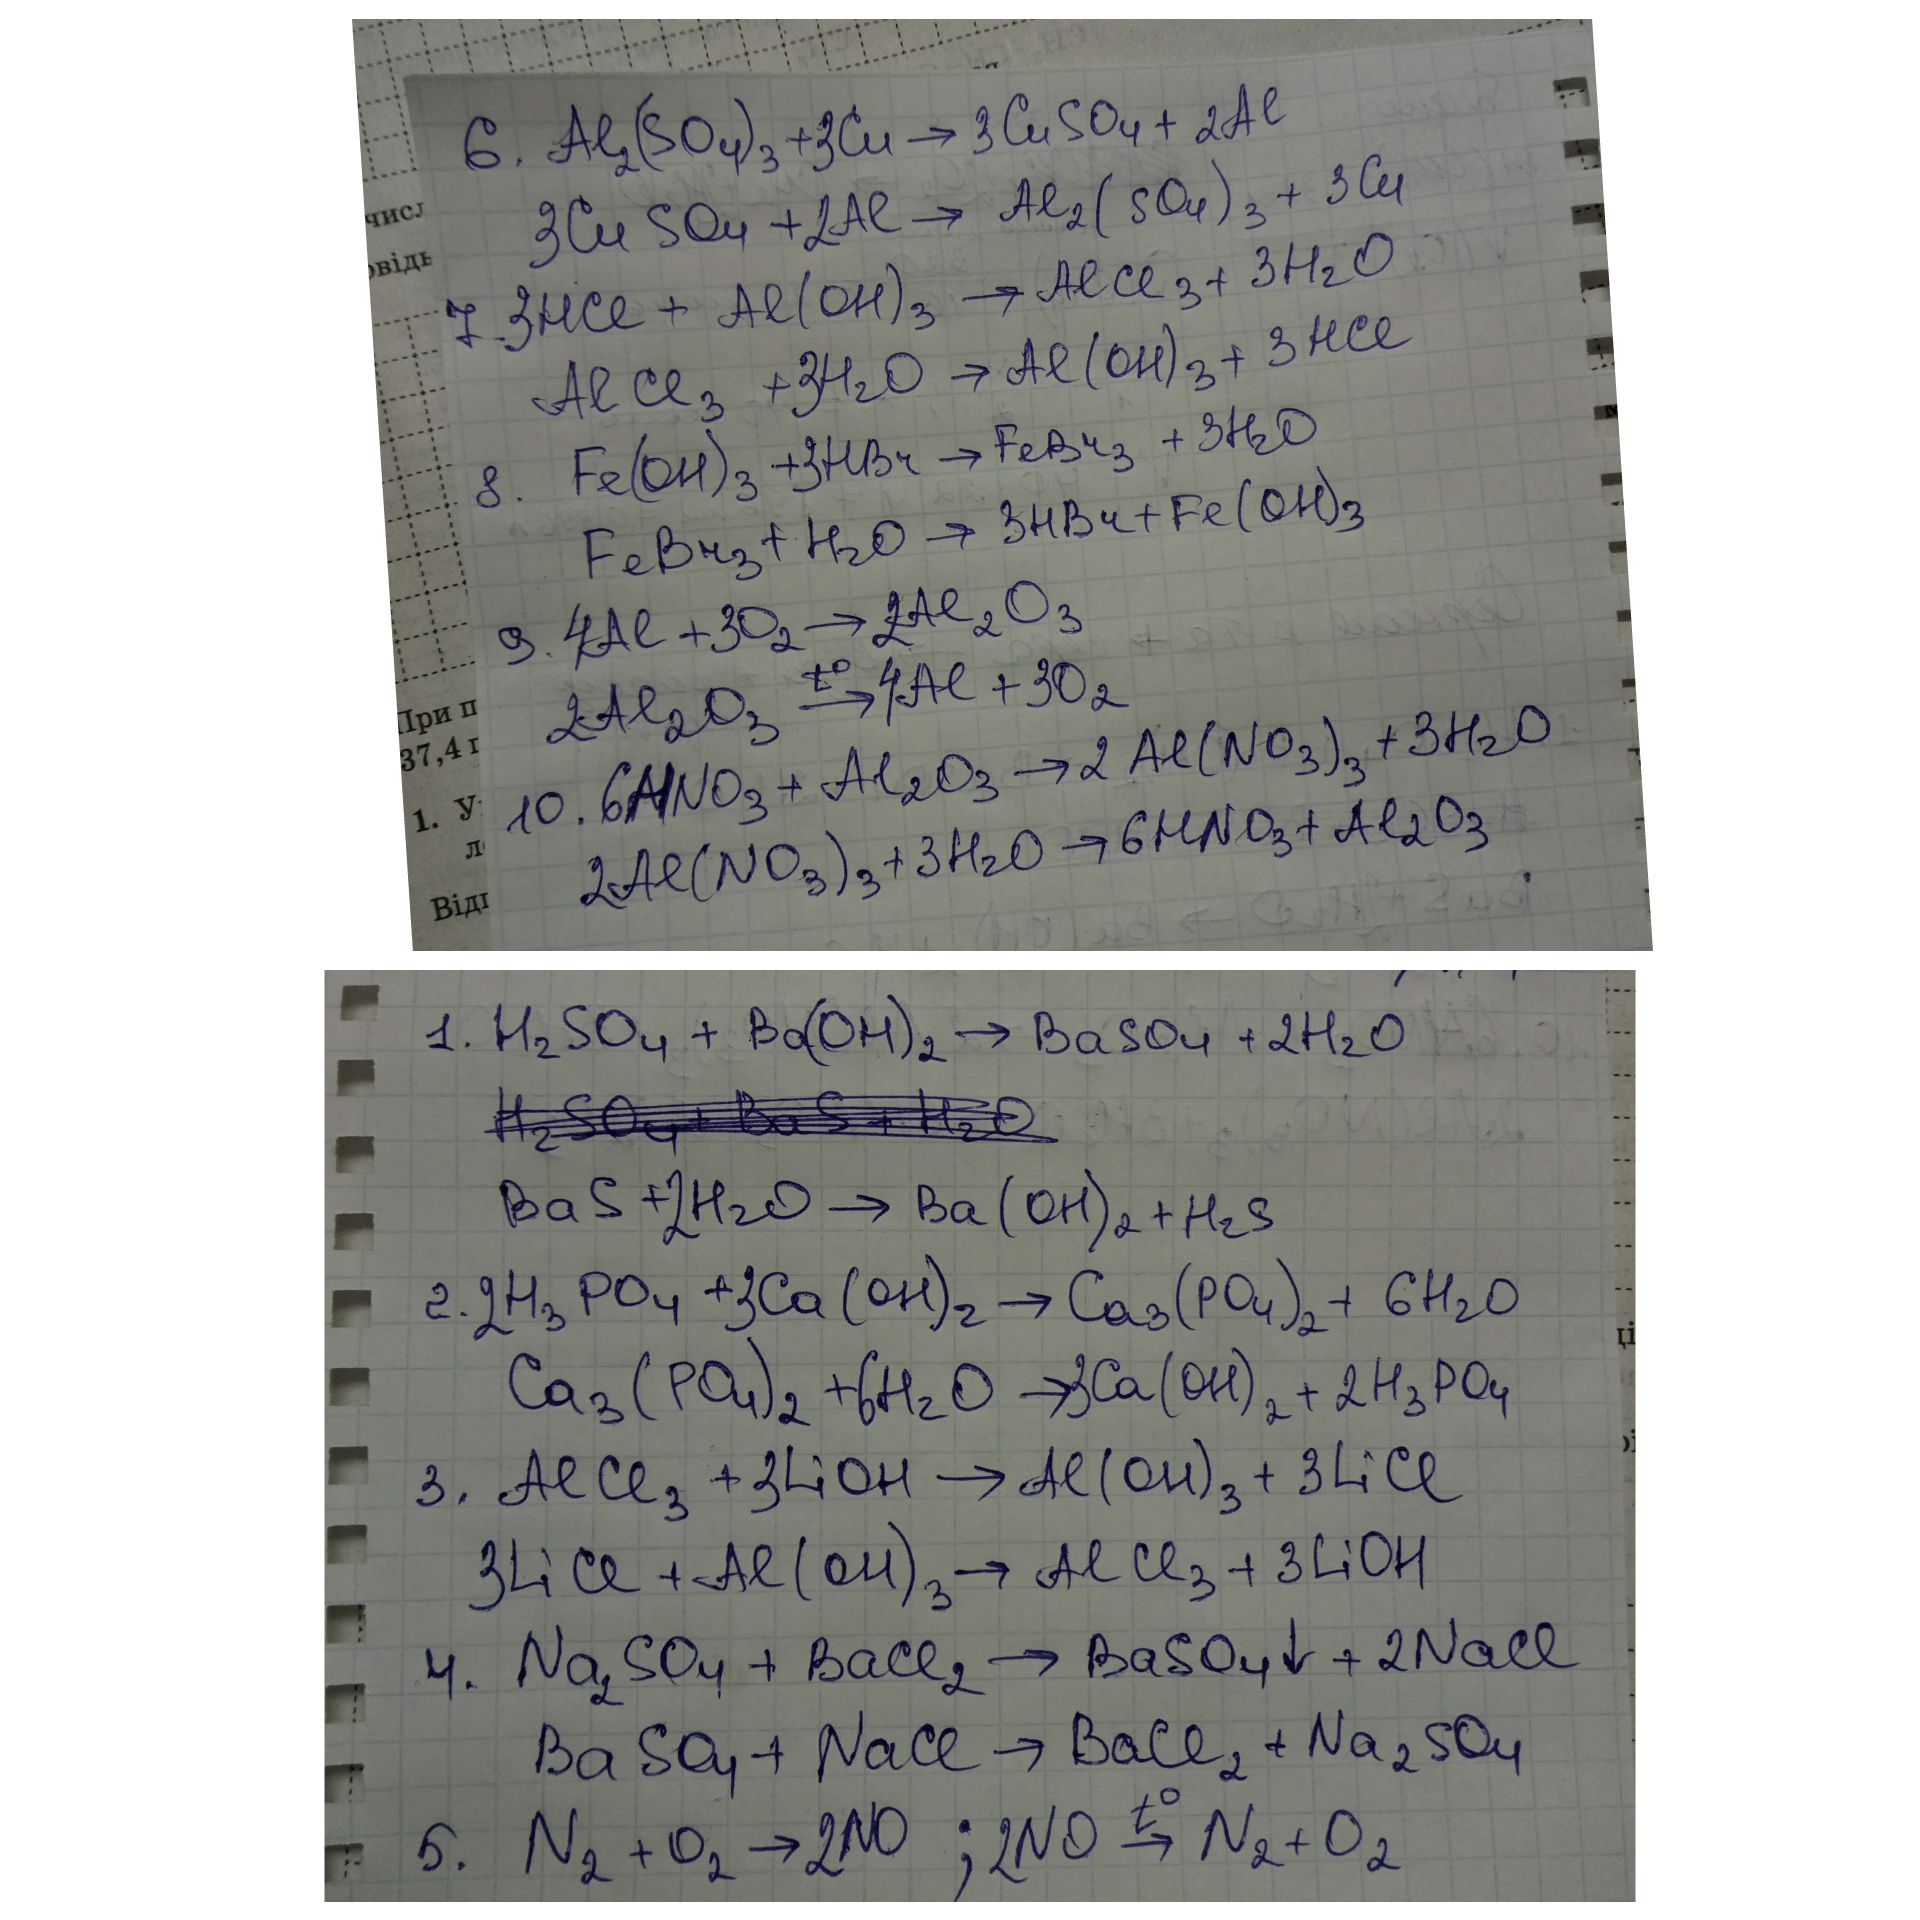 6. Al₂(SO₄)₃ + 3Cu → 3CuSO₄ + 2Al
3CuSO₄ + 2Al → Al₂(SO₄)₃ + 3Cu
7. 3HCl + Al(OH)₃ → AlCl₃ + 3H₂O
AlCl₃ + 3H₂O → Al(OH)₃ + 3HCl
8. Fe(OH)₃ + 3HBr → FeBr₃ + 3H₂O
FeBr₃ + H₂O → 3HBr + Fe(OH)₃
9. 4Al + 3O₂ → 2Al₂O₃
2Al₂O₃ t°→ 4Al + 3O₂
10. 6HNO₃ + Al₂O₃ → 2Al(NO₃)₃ + 3H₂O
2Al(NO₃)₃ + 3H₂O → 6HNO₃ + Al₂O₃
числ
овідь
При п
37,4 г
1. У
Відп
1. H₂SO₄ + Ba(OH)₂ → BaSO₄ + 2H₂O
H₂SO₄ + BaS + H₂O
BaS + 2H₂O → Ba(OH)₂ + H₂S
2. 2H₃PO₄ + 3Ca(OH)₂ → Ca₃(PO₄)₂ + 6H₂O
Ca₃(PO₄)₂ + 6H₂O → 3Ca(OH)₂ + 2H₃PO₄
3. AlCl₃ + 3LiOH → Al(OH)₃ + 3LiCl
3LiCl + Al(OH)₃ → AlCl₃ + 3LiOH
4. Na₂SO₄ + BaCl₂ → BaSO₄↓ + 2NaCl
BaSO₄ + NaCl → BaCl₂ + Na₂SO₄
5. N₂ + O₂ → 2NO ; 2NO t°→ N₂ + O₂